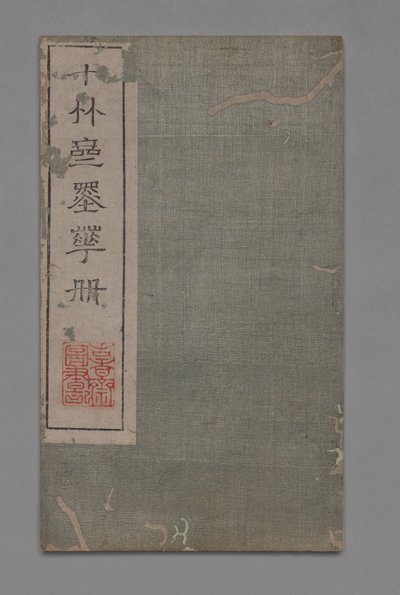 十竹齋墨華冊